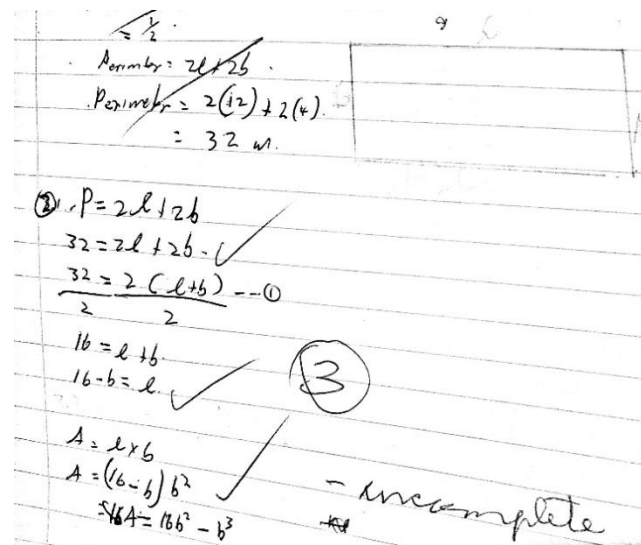 = 1/2
Perimeter = 2l+2b.
Perimeter = 2(12)+2(4).
= 32 m.
② P=2l+2b
32=2l+2b.
32 = 2(l+b) --①
2 2
16=l+b.
16-b=l.
③
A=l×b
A=(16-b)b²
A=16b²-b³
- incomplete